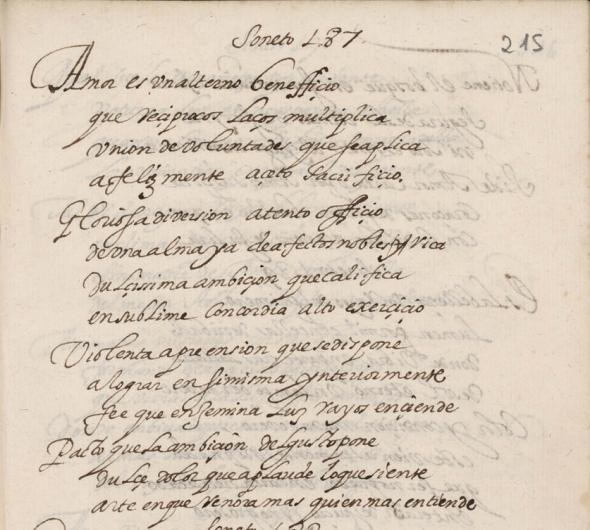 Soneto 187.
215
Amor es vn alterno benefficio
que reciprocos laços multiplica
vnion de voluntades que se aplica
a feliz mente açeto sacrificio,
Gloriosa diversion atento officio
de vna alma ya de afectos nobles rica
Dulçissima ambiçion que califica
en sublime Concordia alto exerçiçio
Violenta aprension que se dispone
a lograr en si misma ynteriormente
fee que en semina Luz rayos ençiende
Pacto que la ambiçion del gusto pone
Dulçe dolor que aplaude lo que siente
arte en que venora mas quien mas entiende